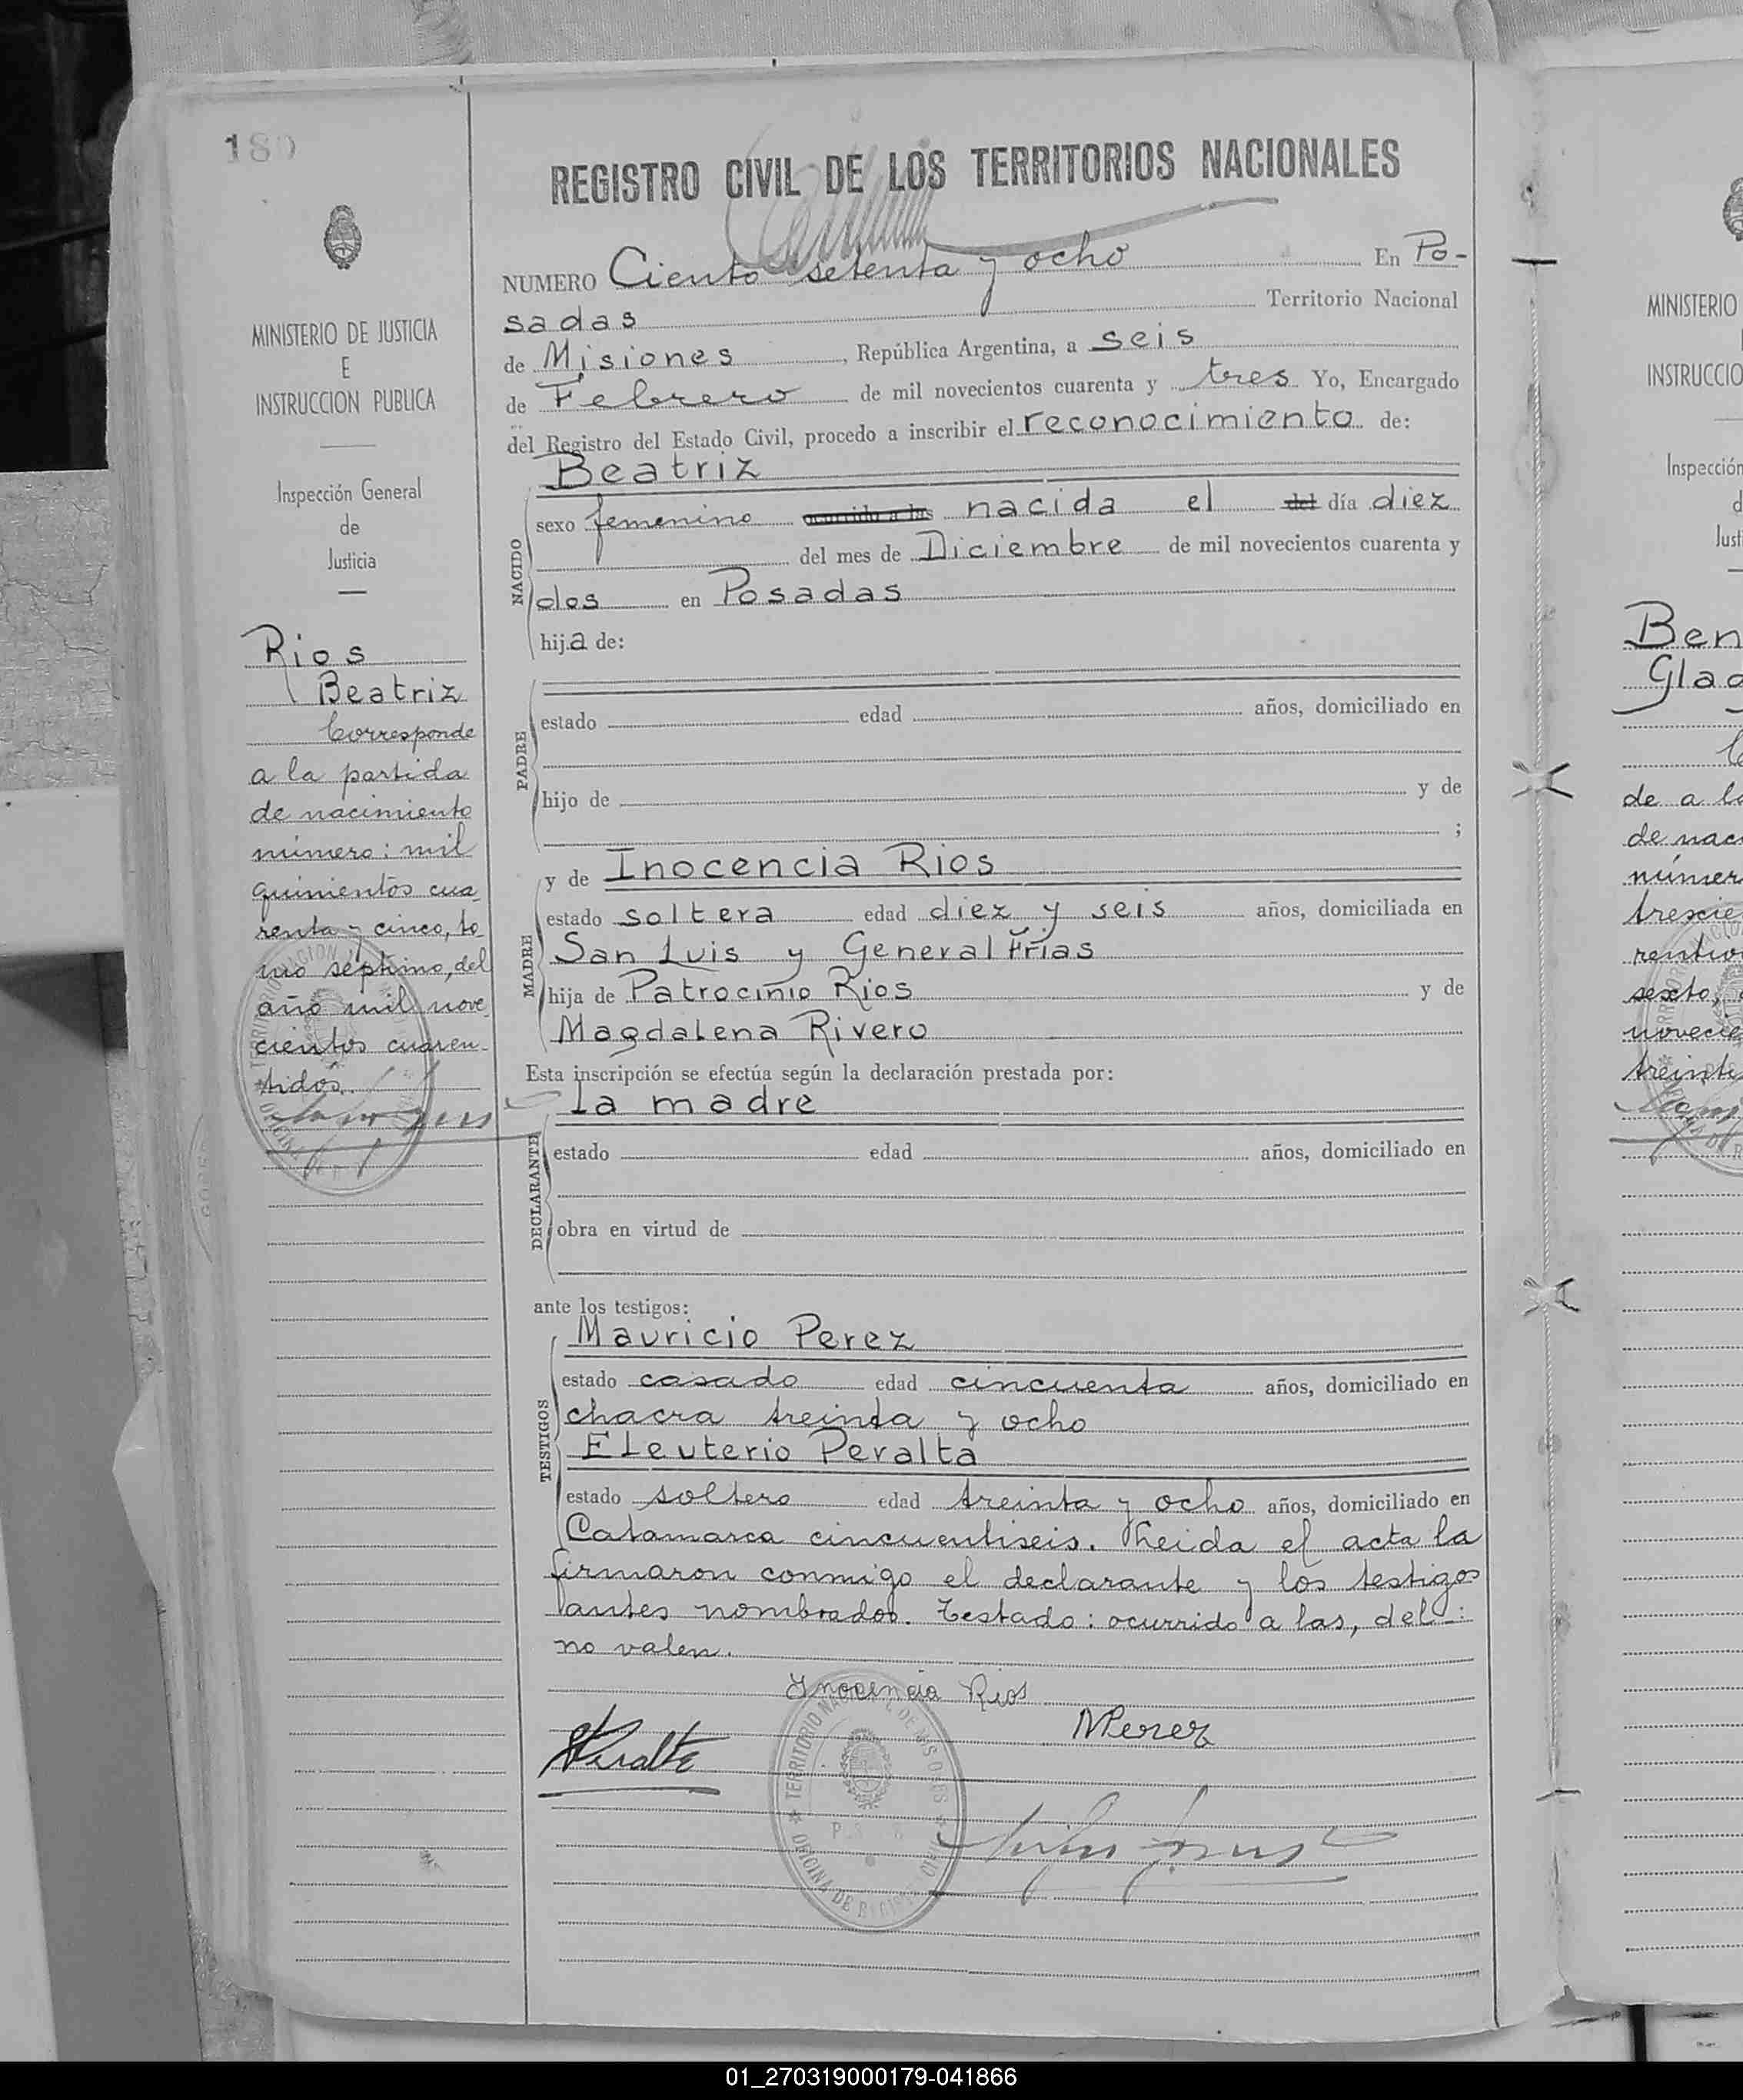 180
MINISTERIO DE JUSTICIA
E
INSTRUCCION PUBLICA
Inspección General
de
Justicia
Rios
Beatriz
Corresponde
a la partida
de nacimiento
número: mil
quinientos cua
renta y cinco, to
mo séptimo, del
año mil nove
cientos cuaren-
tidós.
REGISTRO CIVIL DE LOS TERRITORIOS NACIONALES
NUMERO Ciento setenta y ocho En Po-
sadas Territorio Nacional
de Misiones, República Argentina, a seis
de Febrero de mil novecientos cuarenta y tres Yo, Encargado
del Registro del Estado Civil, procedo a inscribir el reconocimiento de:
Beatriz
NACIDO
sexo femenino ocurrido a las nacida el del día diez
del mes de Diciembre de mil novecientos cuarenta y
dos en Posadas
hija de:
PADRE
estado edad años, domiciliado en
hijo de y de
;
MADRE
y de Inocencia Rios
estado soltera edad diez y seis años, domiciliada en
San Luis y General Frias
hija de Patrocinio Rios y de
Magdalena Rivero
Esta inscripción se efectúa según la declaración prestada por:
la madre
DECLARANTE
estado edad años, domiciliado en
obra en virtud de
ante los testigos:
TESTIGOS
Mauricio Perez
estado casado edad cincuenta años, domiciliado en
chacra treinta y ocho
Eleuterio Peralta
estado soltero edad treinta y ocho años, domiciliado en
Catamarca cincuentiseis. Leida el acta la
firmaron conmigo el declarante y los testigos
antes nombrados. Testado: ocurrido a las, del:
no valen.
Ynocencia Rios
MPerez
EPeralta
TERRITORIO NACIONAL DE MISIONES
OFICINA DE REGISTRO CIVIL
MINISTERIO
INSTRUCCIO
Inspección
d
Just
Ben
Glad
de a la
de nac
número
trescie
sexto,
novecie
treinta
01_270319000179-041866